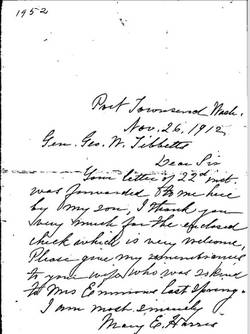 1952
Port Townsend Wash.
Nov. 26, 1912
Gen. Geo. W. Tibbetts
Dear Sir
Your letter of 22nd inst.
was forwarded to me here
by my son, I thank you
very much for the enclosed
check which is very welcome,
Please give my remembrances
to your wife who was so kind
to Mrs Emmons last Spring.
I am most sincerely
Mary E.